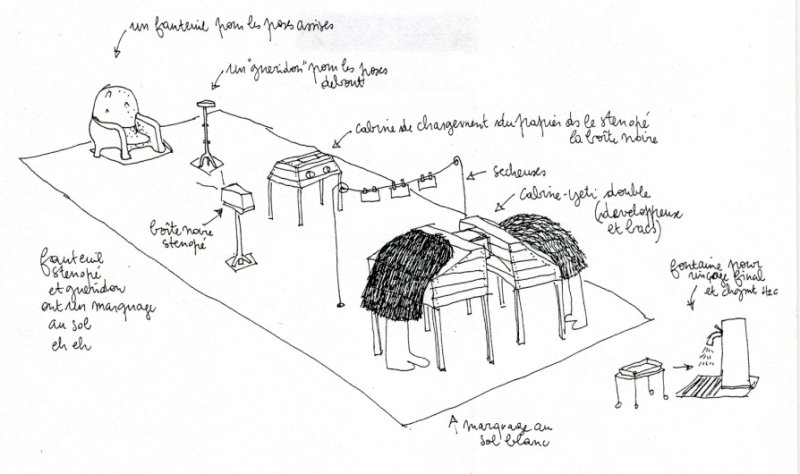 un fauteuil pour les poses assises
un "gueridon" pour les poses
debout
cabine de chargement du papier ds le stenopé
la boîte noire
secheuses
cabine-yeti double
(developpeux
et bacs)
boîte noire
stenopé
fauteuil
stenopé
et gueridon
ont un marquage
au sol
eh eh
fontaine pour
rinçage final
et chgmt H2O
marquage au
sol blanc